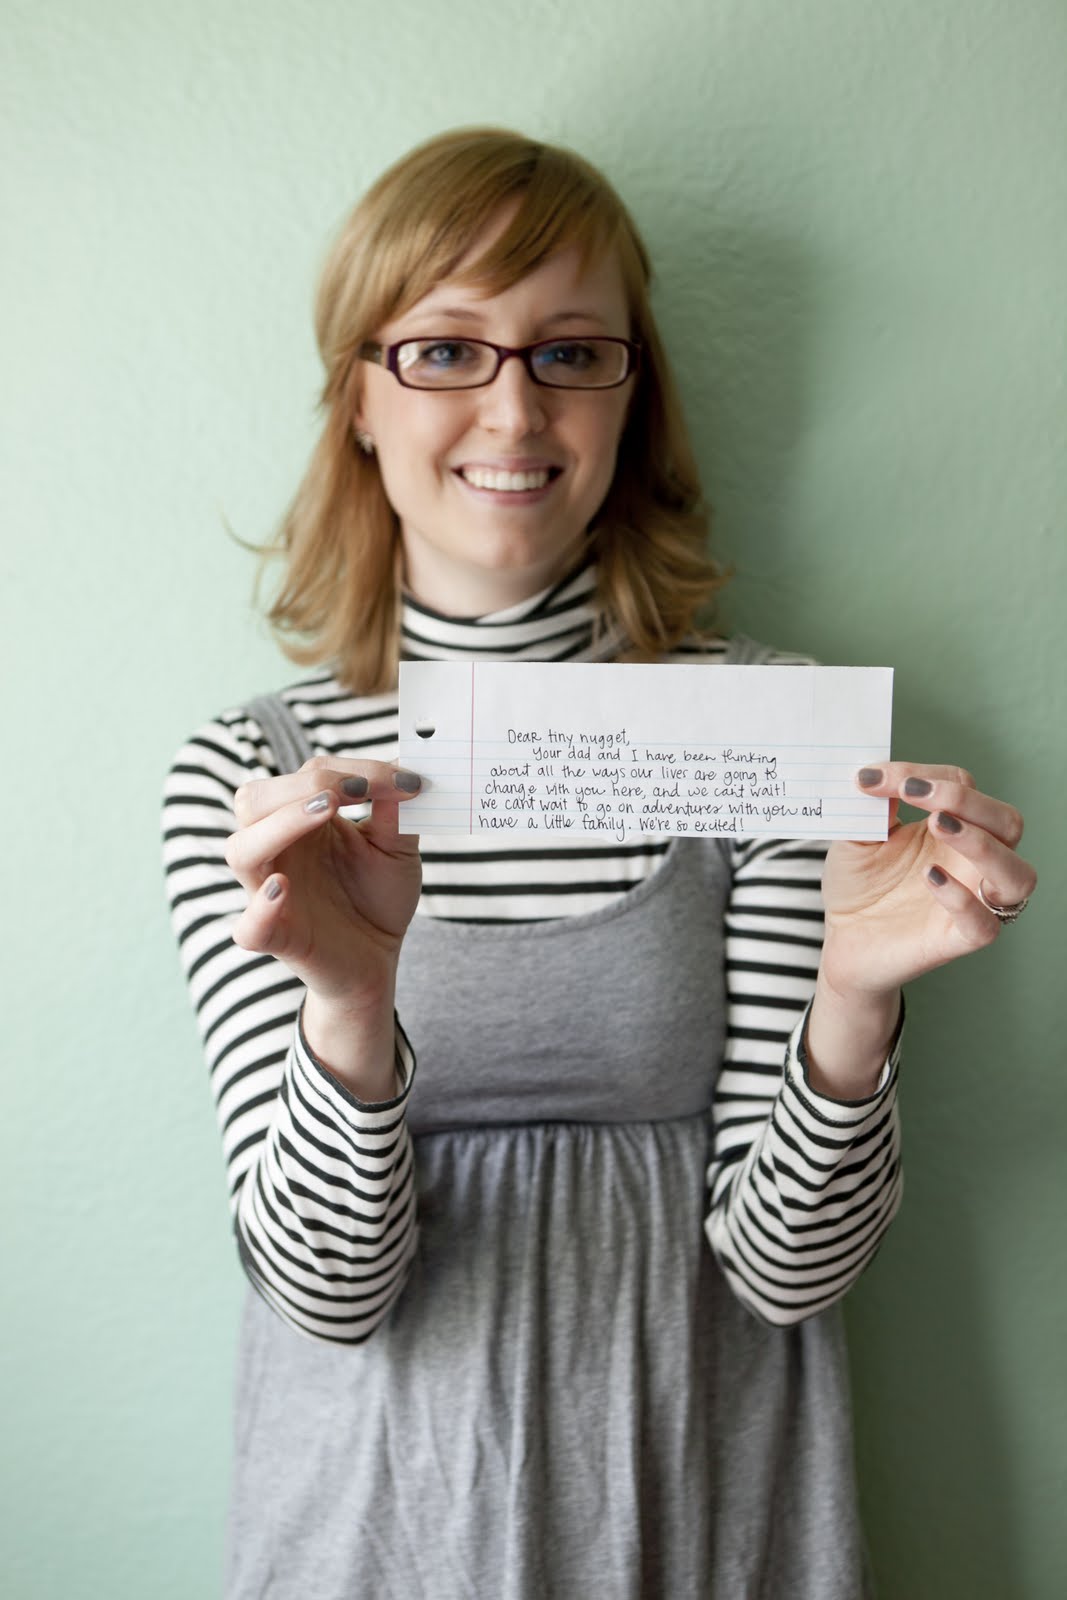 Dear tiny nugget,
Your dad and I have been thinking
about all the ways our lives are going to
change with you here, and we can't wait!
We can't wait to go on adventures with you and
have a little family. We're so excited!